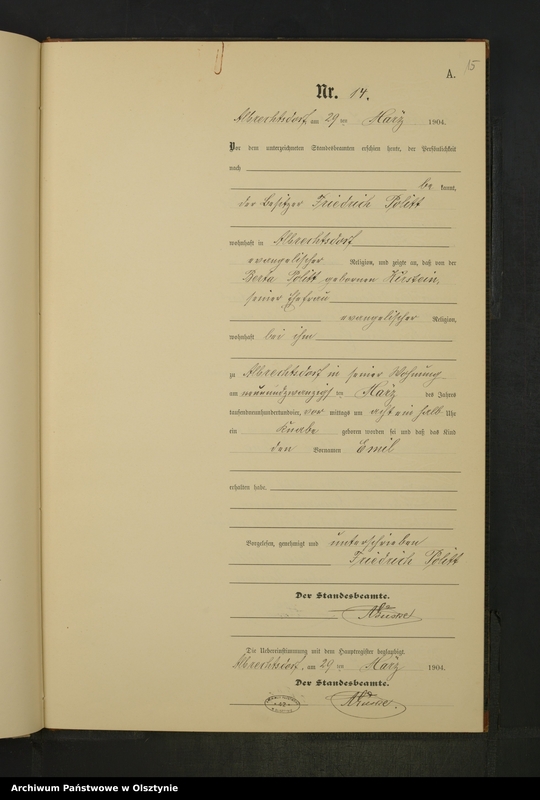 15
A.
Nr. 14.
Albrechtsdorf, am 29 ten März 1904.
Vor dem unterzeichneten Standesbeamten erschien heute, der Persönlichkeit
nach
be kannt,
der Besitzer Friedrich Politt
wohnhaft in Albrechtsdorf
evangelischer Religion, und zeigte an, daß von der
Berta Politt gebornen Kirstein,
seiner Ehefrau
evangelischer Religion,
wohnhaft bei ihm
zu Albrechtsdorf in seiner Wohnung
am neunundzwanzigsten März des Jahres
tausendneunhundertundvier, vor mittags um acht ein halb Uhr
ein Knabe geboren worden sei und daß das Kind
den Vornamen Emil
erhalten habe.
Vorgelesen, genehmigt und unterschrieben
Friedrich Politt
Der Standesbeamte.
Die Uebereinstimmung mit dem Hauptregister beglaubigt.
Albrechtsdorf, am 29 ten März 1904.
Der Standesbeamte.
Archiwum Państwowe w Olsztynie